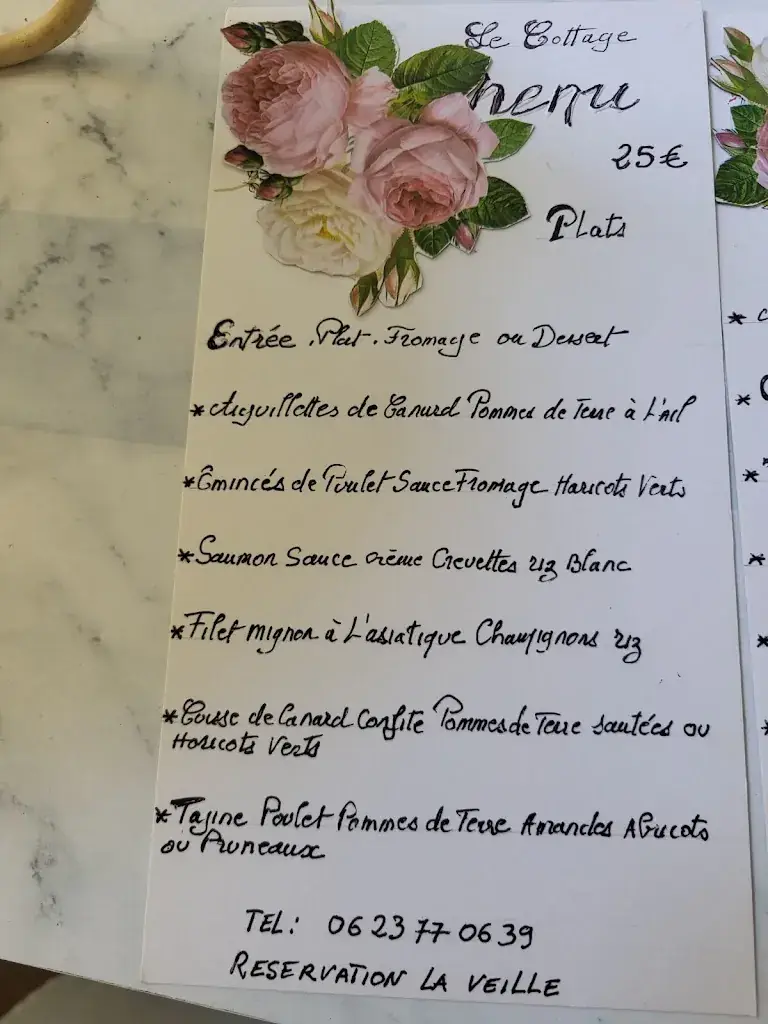 Le Cottage
menu
25€
Plats
Entrée . Plat . Fromage ou Dessert
* Aiguillettes de Canard Pommes de Terre à L'Ail
* Émincés de Poulet Sauce Fromage Haricots Verts
* Saumon Sauce crème Crevettes riz Blanc
* Filet mignon à L'asiatique Champignons riz
* Cuisse de Canard Confite Pommes de Terre sautées ou
Haricots Verts
* Tajine Poulet Pommes de Terre Amandes Abricots
ou Pruneaux
TEL: 06 23 77 06 39
RESERVATION LA VEILLE